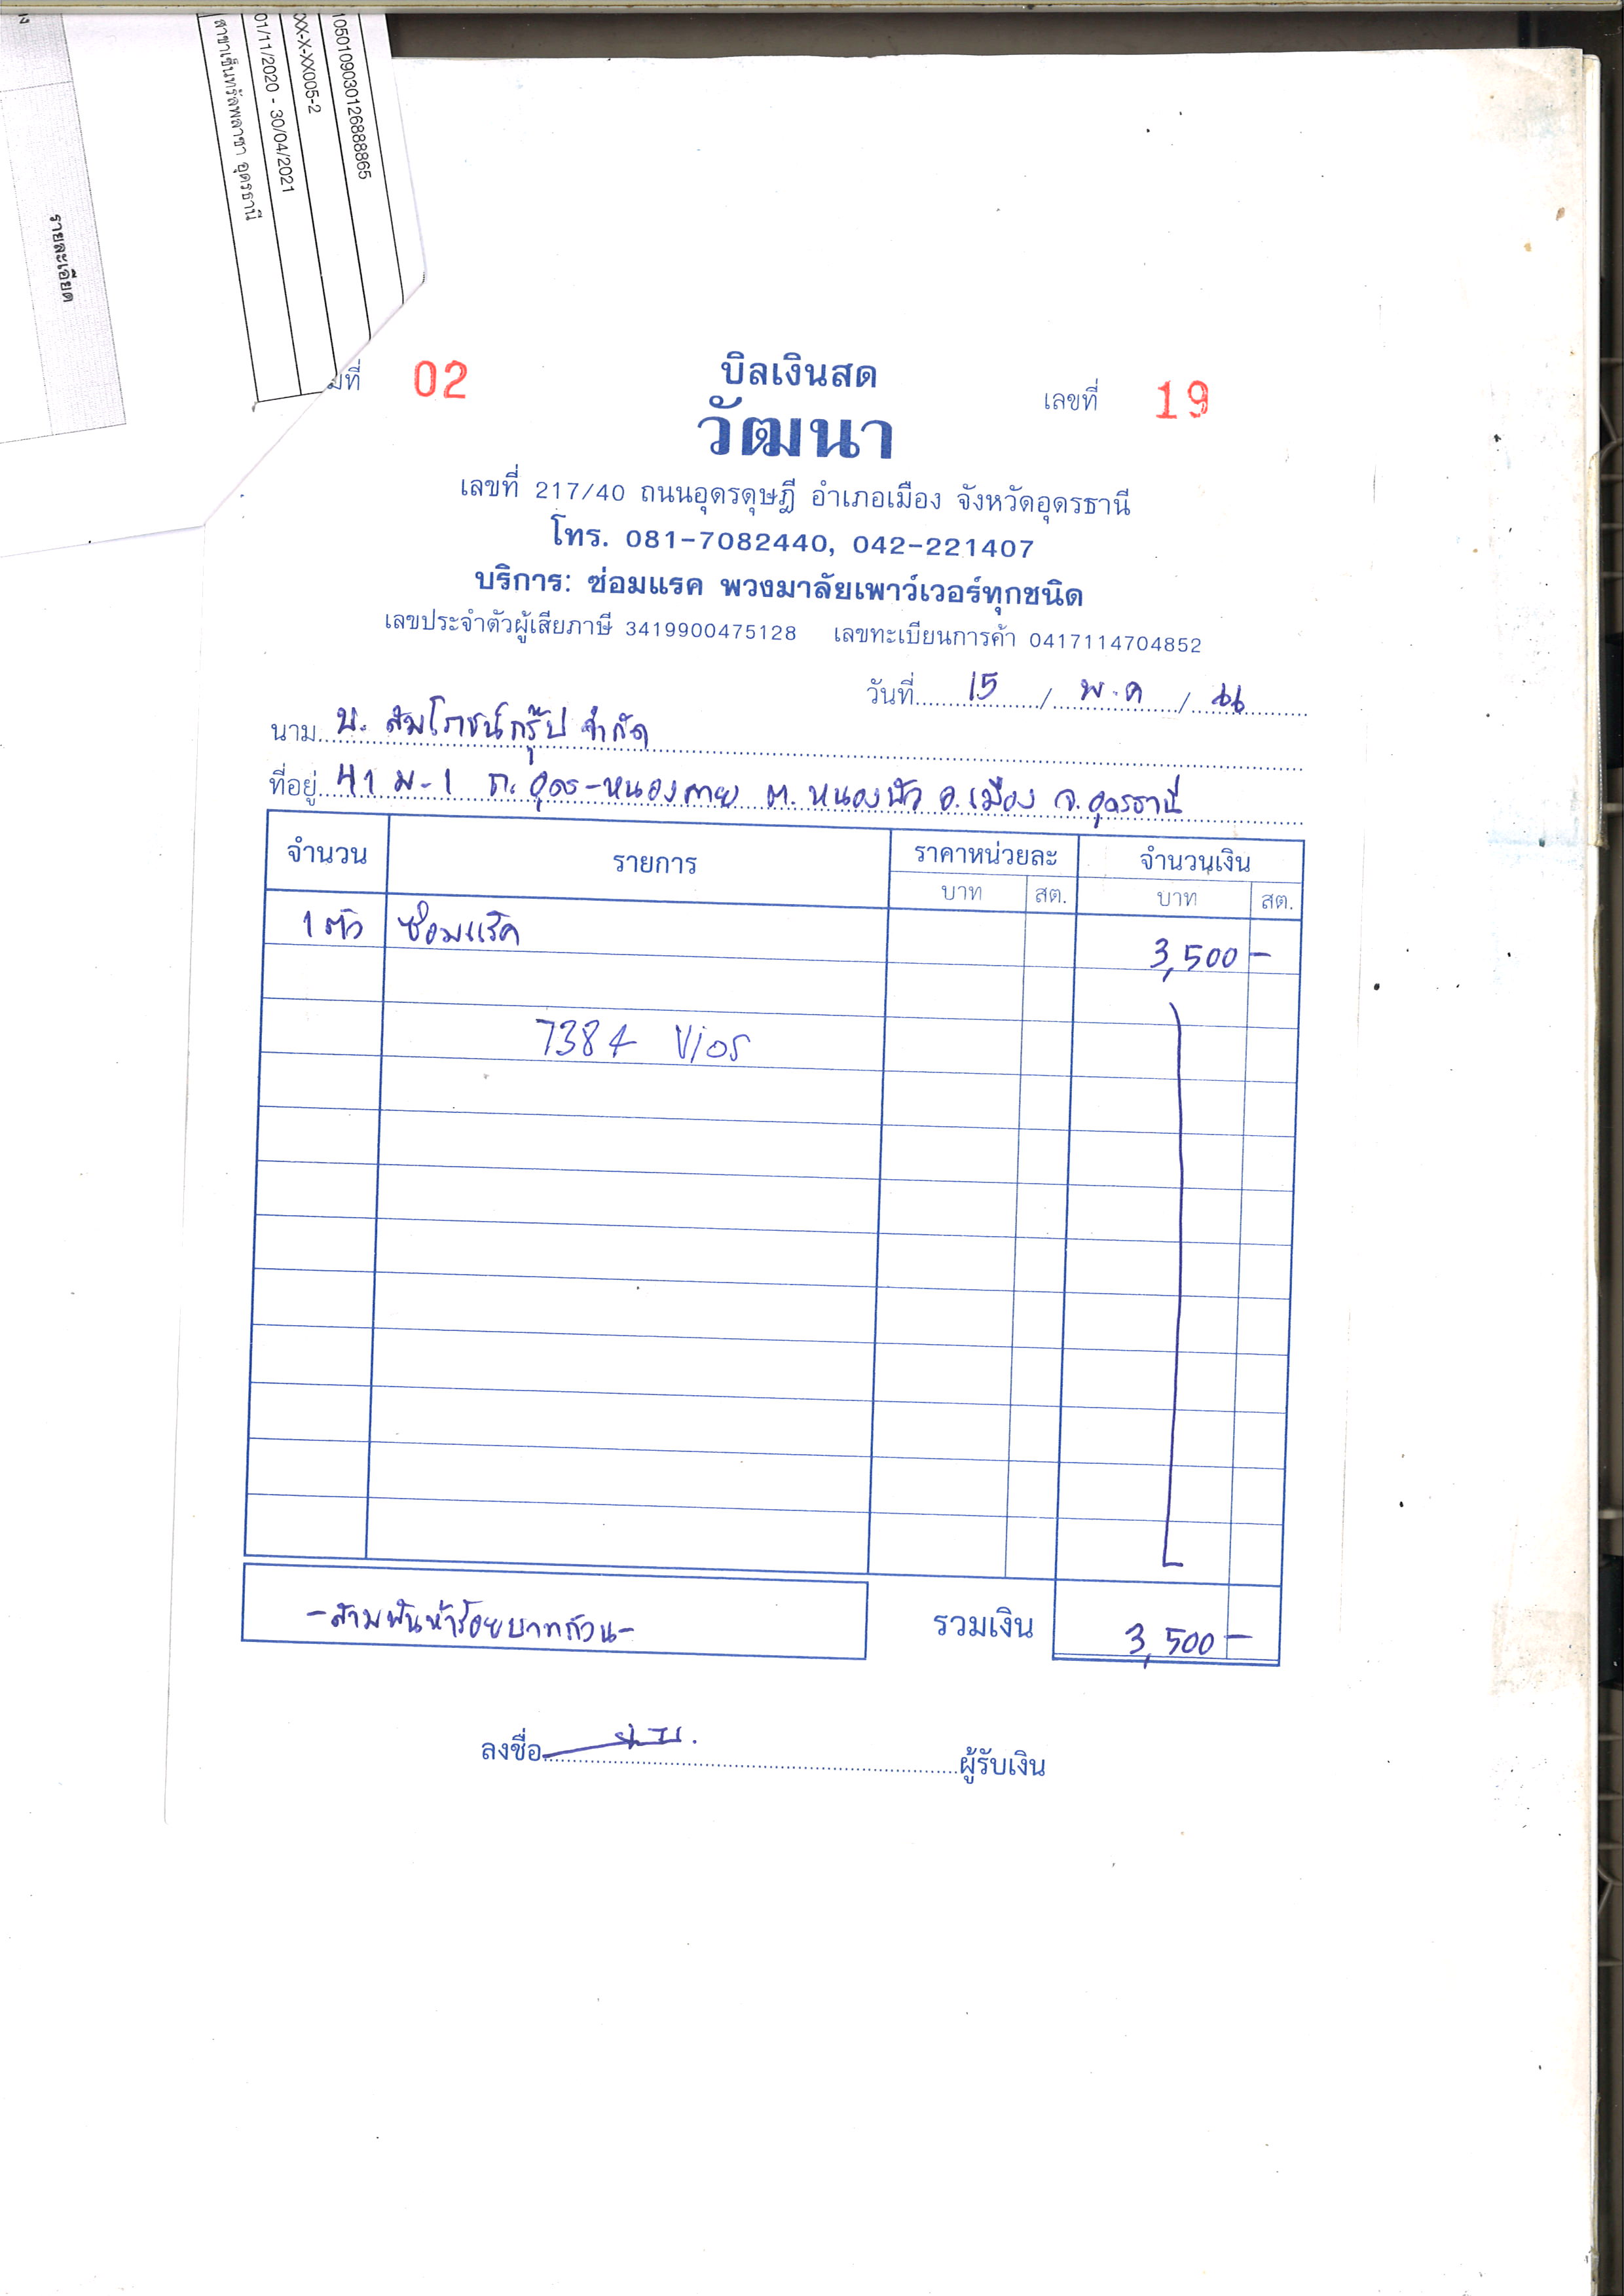 10501090301268888865
XX-X-XX005-2
01/11/2020 - 30/04/2021
สาขาเซ็นทรัลพลาซา อุดรธานี
รายละเอียด
มที่ 02
บิลเงินสด
เลขที่ 19
วัฒนา
เลขที่ 217/40 ถนนอุดรดุษฎี อำเภอเมือง จังหวัดอุดรธานี
โทร. 081-7082440, 042-221407
บริการ: ซ่อมแรค พวงมาลัยเพาว์เวอร์ทุกชนิด
เลขประจำตัวผู้เสียภาษี 3419900475128 เลขทะเบียนการค้า 0417114704852
วันที่ 15 / พ.ค /
นาม บ. สัมโภชน์กรุ๊ป จำกัด
ที่อยู่ 41 ม.1 ถ. อุดร-หนองคาย ต. หนองบัว อ.เมือง จ.อุดรธานี
จำนวน รายการ ราคาหน่วยละ จำนวนเงิน
บาท สต. บาท สต.
1 ตัว ซ่อมแร็ค 3,500 -
7384 Vios
-สามพันห้าร้อยบาทถ้วน- รวมเงิน 3,500 -
ลงชื่อ ผู้รับเงิน